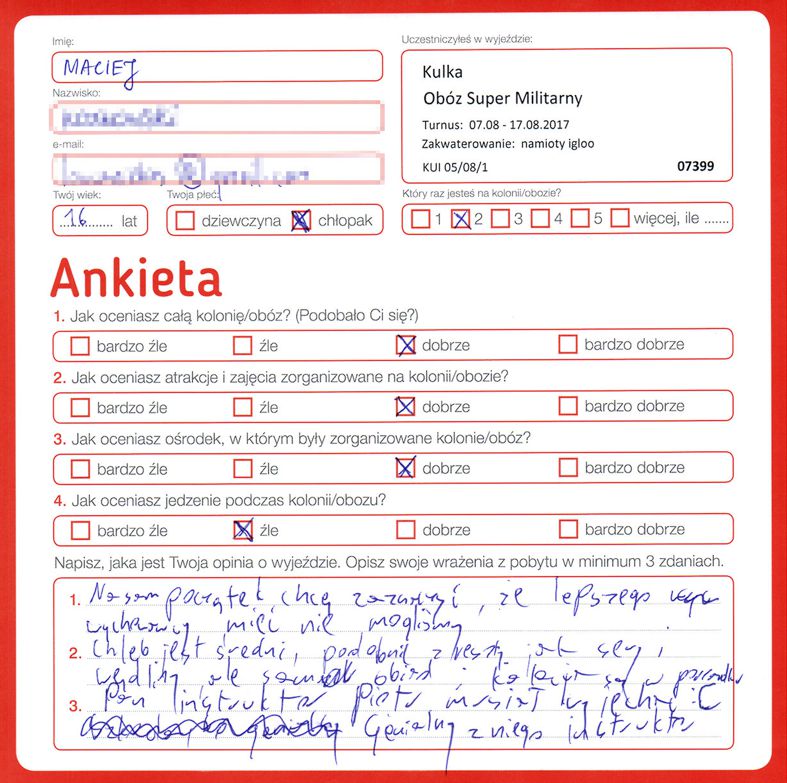 Imię:
MACIEJ
Uczestniczyłeś w wyjeździe:
Kulka
Obóz Super Militarny
Turnus: 07.08 - 17.08.2017
Zakwaterowanie: namioty igloo
KUI 05/08/1 07399
Nazwisko:
e-mail:
Twój wiek:
16 lat
Twoja płeć:
dziewczyna chłopak
Który raz jesteś na kolonii/obozie?
1 2 3 4 5 więcej, ile .......
Ankieta
1. Jak oceniasz całą kolonię/obóz? (Podobało Ci się?)
bardzo źle źle dobrze bardzo dobrze
2. Jak oceniasz atrakcje i zajęcia zorganizowane na kolonii/obozie?
bardzo źle źle dobrze bardzo dobrze
3. Jak oceniasz ośrodek, w którym były zorganizowane kolonie/obóz?
bardzo źle źle dobrze bardzo dobrze
4. Jak oceniasz jedzenie podczas kolonii/obozu?
bardzo źle źle dobrze bardzo dobrze
Napisz, jaka jest Twoja opinia o wyjeździe. Opisz swoje wrażenia z pobytu w minimum 3 zdaniach.
1. Na sam początek chcę zaznaczyć, że lepszego
wychowawcy mieć nie mogliśmy
2. Chleb jest średni, podobnie zresztą jak sery i
wędliny ale obiad i kolacje są w porządku
3. Pan instruktor Piotr musiał wyjechać :C
Genialny z niego instruktor